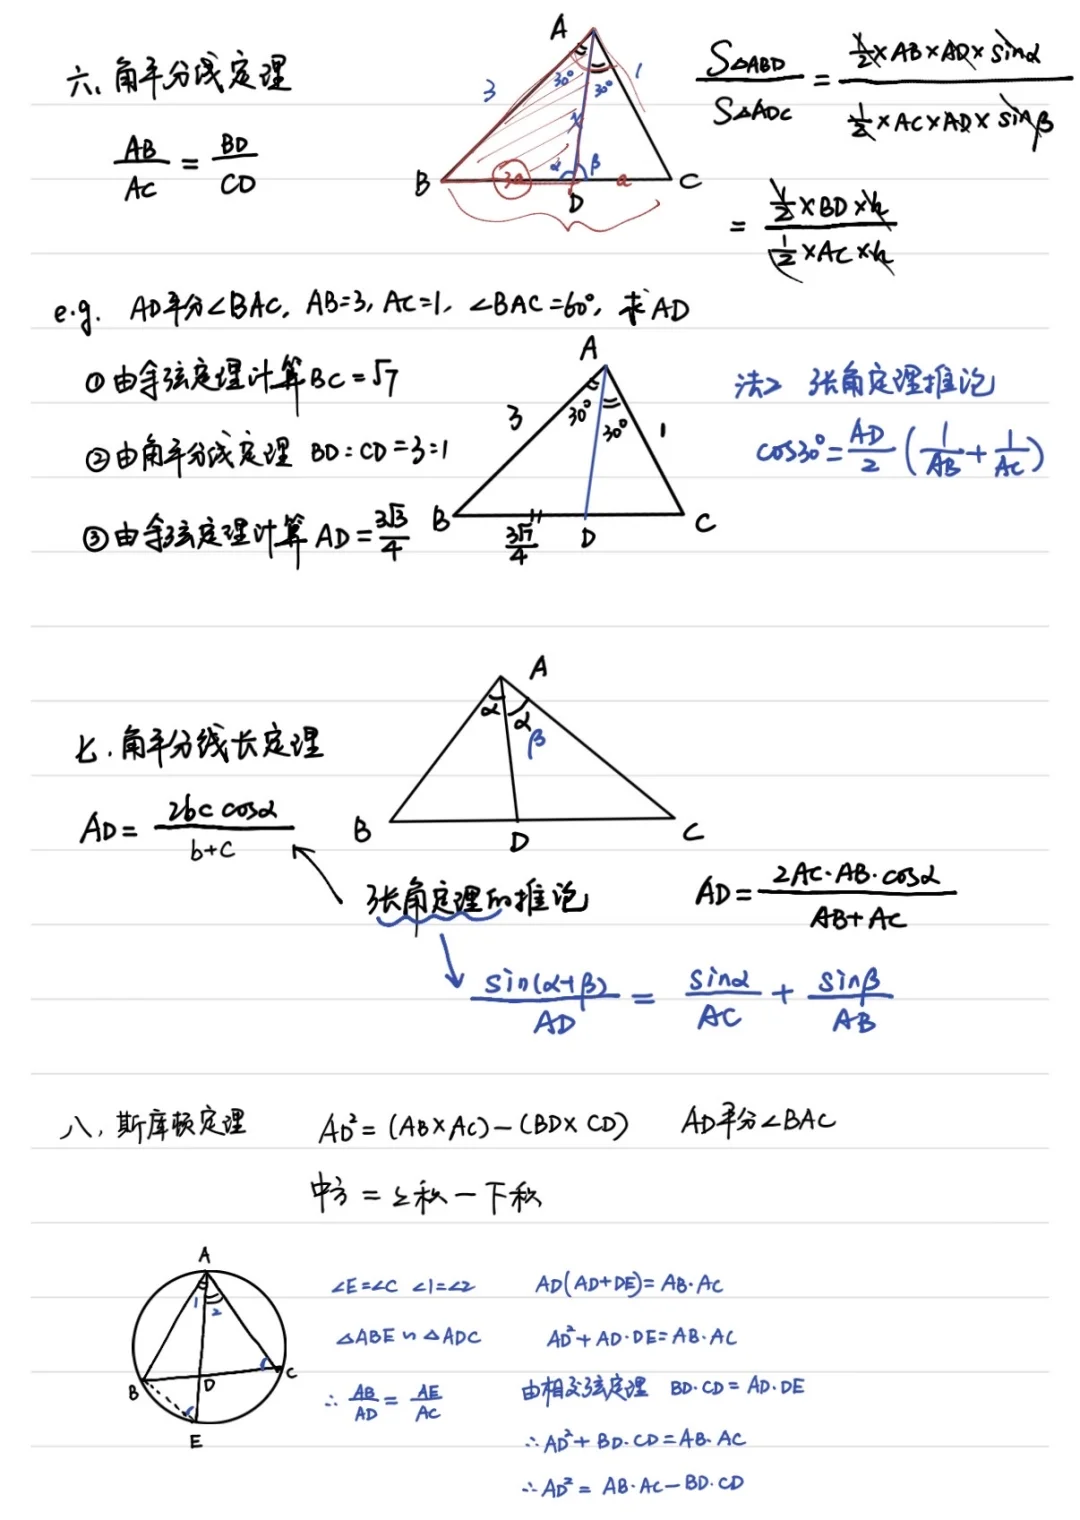 六、角平分线定理
AB/AC = BD/CD
A
3
30° 30°
1
x
α β
B
3a
D
a
C
S△ABD/S△ADC = (1/2×AB×AD×sinα)/(1/2×AC×AD×sinβ)
= (1/2×BD×h)/(1/2×AC×h)
e.g. AD平分∠BAC, AB=3, AC=1, ∠BAC=60°, 求AD
①由余弦定理计算BC=√7
②由角平分线定理 BD:CD=3:1
③由余弦定理计算AD=3√3/4
A
3
30°
30°
1
B
3√7/4
D
C
法2 张角定理推论
cos30°=AD/2(1/AB+1/AC)
七.角平分线长定理
AD=2bc cosα/b+c
A
α α
β
B
D
C
张角定理的推论
AD=2AC·AB·cosα/AB+AC
sin(α+β)/AD = sinα/AC + sinβ/AB
八,斯库顿定理 AD²=(AB×AC)-(BD×CD) AD平分∠BAC
中方=上积-下积
A
1 2
B
D
C
E
∠E=∠C ∠1=∠2
△ABE∽△ADC
∴AB/AD=AE/AC
AD(AD+DE)=AB·AC
AD²+AD·DE=AB·AC
由相交弦定理 BD·CD=AD·DE
∴AD²+BD·CD=AB·AC
∴AD²=AB·AC-BD·CD